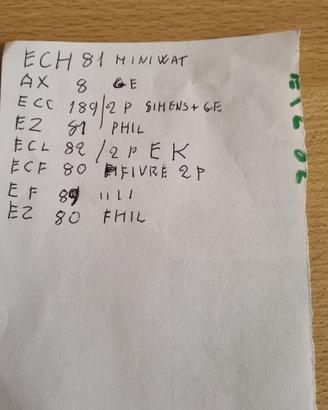 ECH 81 MINIWAT
AX 8 GE
ECC 189/2 P SIMENS+GE
EZ 81 PHIL
ECL 82 /2 P E K
ECF 80 FEIVRE 2 P
EF 89 " " "
EZ 80 PHIL